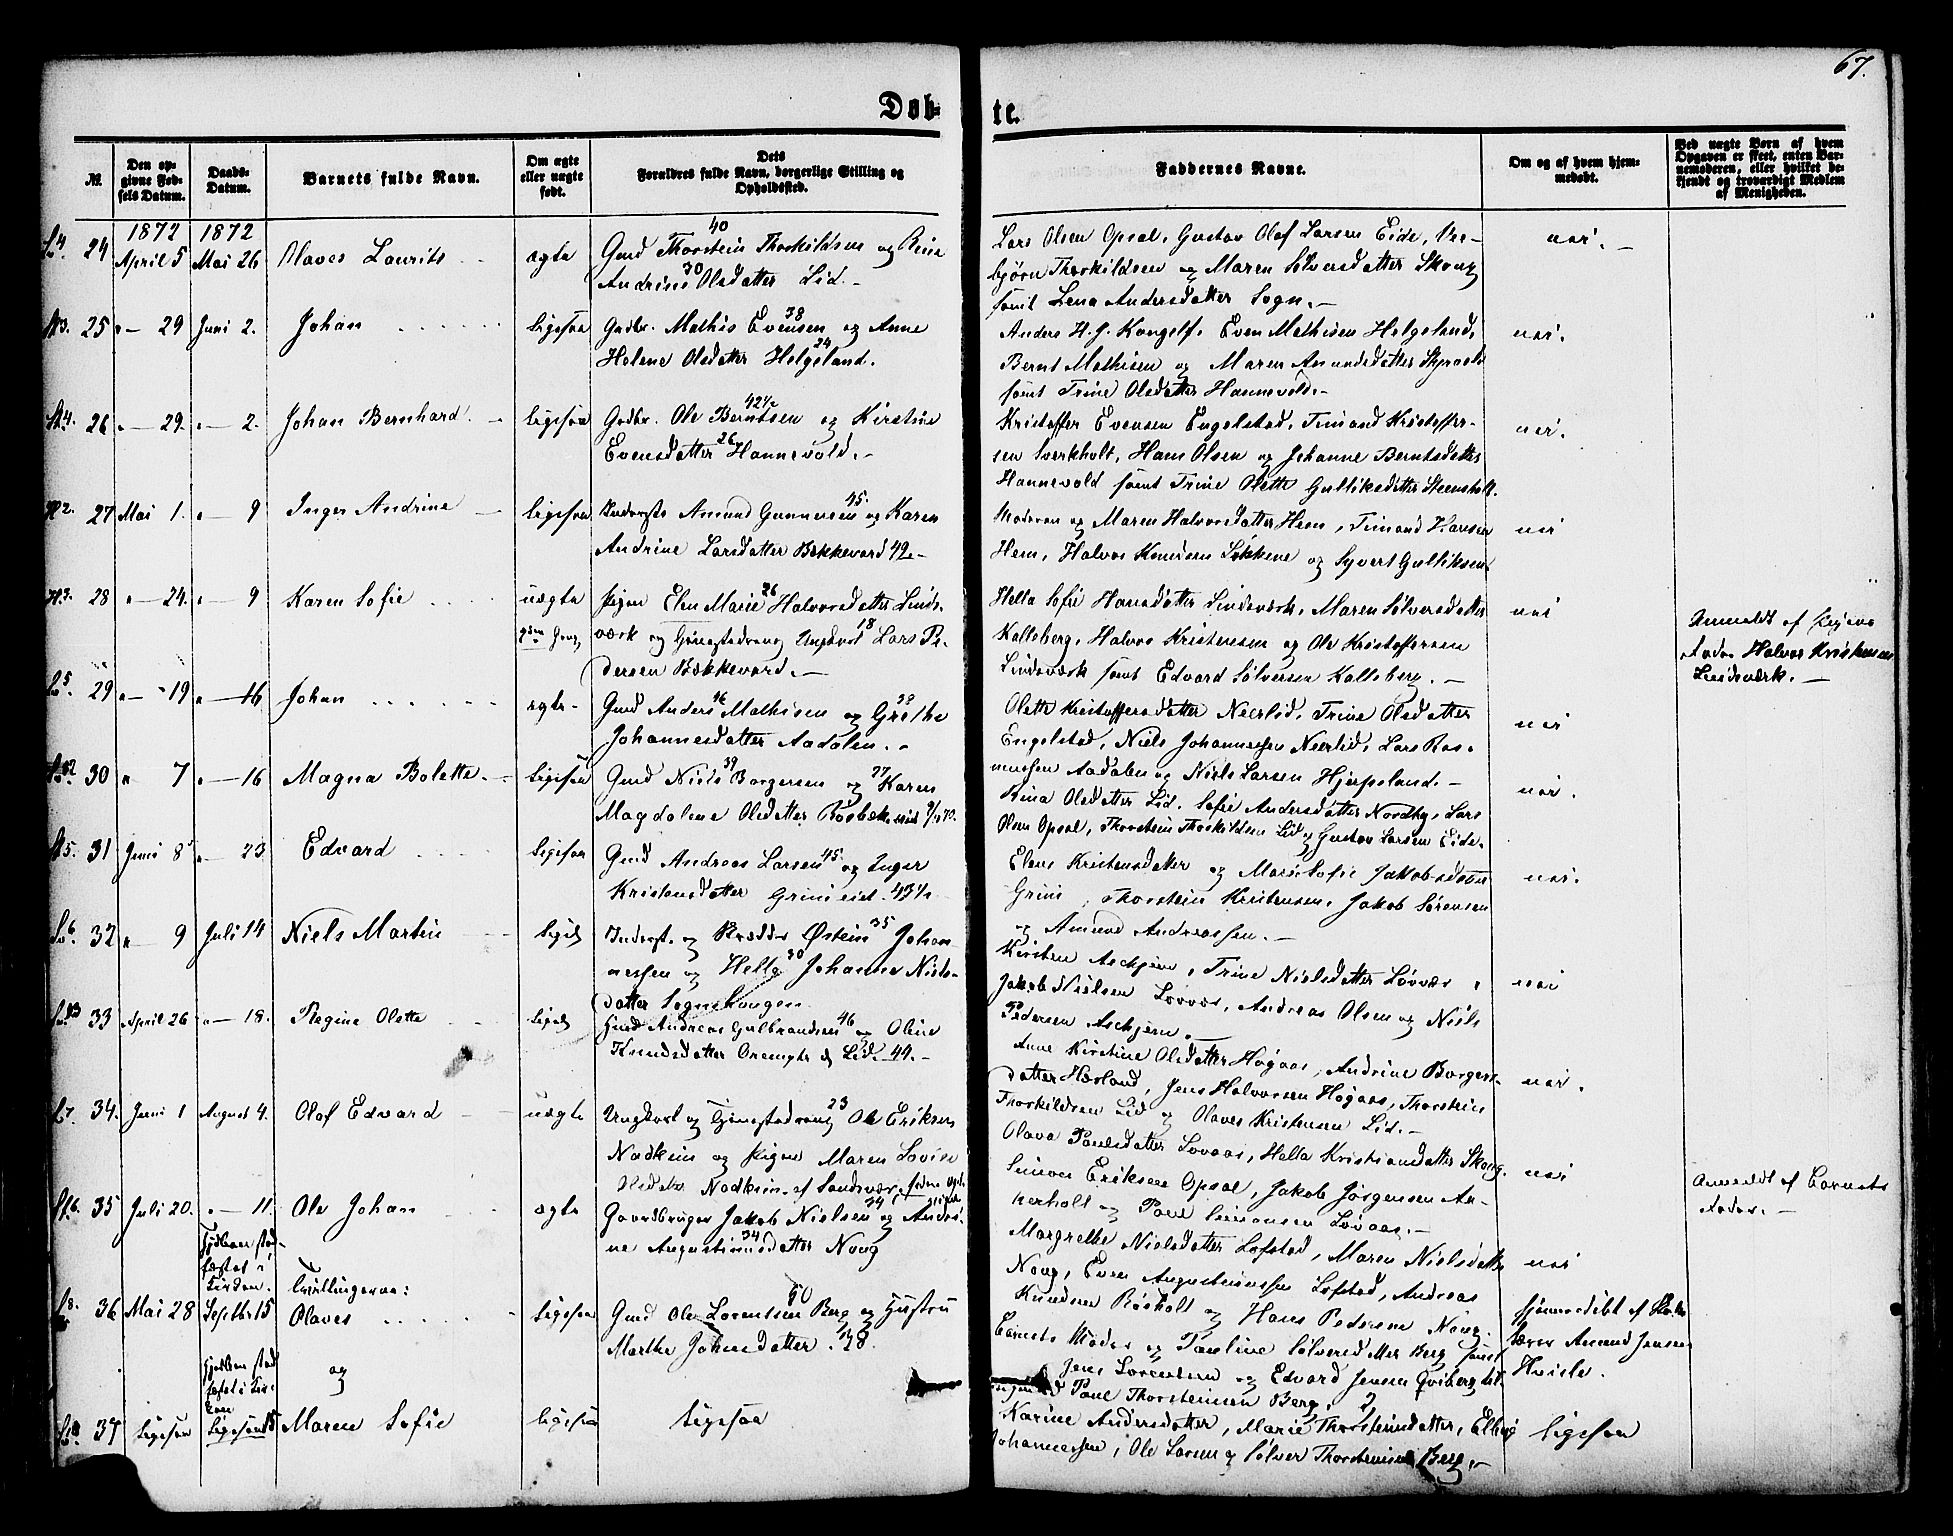 67.
Døb-
te.
№.
Den op-
givne Fød-
sels Datum.
Daabs-
Datum.
Barnets fulde Navn.
Om ægte
eller uægte
født.
Dets
Forældres fulde Navn, borgerlige Stilling og
Opholdssted.
Faddernes Navne.
Om og af hvem hjem-
medøbt.
Ved uægte Børn af hvem
Opgaven er skeet, enten Bar-
nemoderen, eller hvilket be-
kjendt og troværdigt Medlem
af Menigheden.
1872 1872
24 April 5 Mai 26 Olaves Laurits ægte
40
Gmd Thorstein Thorkildsen og Rina
Andrine 30 Olsdatter Lid.
Lars Olsen Opsal, Gustav Olaf Larsen Eide, Ves-
bjørn Thorkildsen og Maren Sølversdatter Skoug
samt Lena Andersdatter Sogn.
nei.
25 29 Juni 2. Johan ligesaa
Gadbr. Mathis Evensen 38 og Anne
Helene Olsdatter 24 Helgeland.
Anders H. J. Kongelf. Even Mathisen Helgeland,
Bernt Mathisen og Maren Amundsdatter
samt Trine Olsdatter Hannevold.
nei.
26 29. 2. Johan Bernhard ligesaa
Gadbr. Ole Berntsen 42½ og Kirstine
Evensdatter 26 Hannevold.
Kristoffer Evensen Engelstad, Timand Kristoffer-
sen Sverkholt, Hans Olsen og Johanne Berntsdatter
Hannevold samt Trine Olette Gulliksdatter Steensholt.
nei.
27 Mai 1. 9 Inger Andrine ligesaa
Inderste Amund Gunnersen 45. og Karen
Andrine Larsdatter Bækkevard 42
Moderen og Maren Halvorsdatter Hem, Timand Hansen
Hem, Halvor Knudsen Løkkene og Syvert Gulliksen.
nei
28 24. 9 Karen Sofie uægte
Pigen Elen Marie 26 Halvorsdatter Linds-
værk og Gjenstedvang Ungkarl 18 Lars Pe-
dersen Bækkevard.
Hella Sofie Hansdatter Lindsværk, Maren Sølversdatter
Kallsberg, Halvor Kristensen og Ole Kristoffersen
Lindsværk samt Edvard Sølversen Kallsberg.
nei
Anmeldt af Pigens
Fader Halvor Kristensen
Lindsværk.
29 19 16 Johan ægte
Gmd Anders 46 Mathisen og Grethe 39
Johannesdatter Aadalen.
Olette Kristoffersdatter Neerlid, Trine Olsdatter
Engelstad, Niels Johannessen Neerlid, Lars Ras-
mussen Aadalen og Niels Larsen Hjerpeland.
nei
30 7 16 Magna Bolette ligesaa
Gmd Niels 39 Borgersen og 37 Karen
Magdalene Olsdatter Rosbak
Rina Olsdatter Lid, Sofie Andersdatter Nordby, Lars
Olsen Opsal, Thorstein Thorkildsen Lid og Gustav Larsen Eide.
nei.
31 Juni 8 23 Edvard ligesaa
Gmd Andreas Larsen 45. og Inger
Kristensdatter Grini eid. 43½
Elene Kristensdatter og Marie Sofie Jakobsdatter
Grini, Thorstein Kristensen, Jakob Sørensen
og Amund Andreassen.
nei.
32 9 Juli 14 Niels Martin
Inderst. og Skrædder Østein 35 Johan-
nessen og Helle 30 Johanne Niels-
datter Sogneskougen
Kirsten Aschjem, Trine Nielsdatter Lovaas,
Jakob Nielsen Lovaas, Andreas Olsen og Niels
Pedersen Aschjem.
nei
33 April 26 18. Regine Olette
Gmd Andreas Gulbrandsen 46 og Oline
Knudsdatter Lid. 44.
Anne Kirstine Olsdatter Høgaas, Andrine Borgers-
datter Hæsland, Jens Halvorsen Høgaas, Thorstein
Thorkildsen Lid og Olaves Kristensen Lid.
nei.
34. Juni 1 August 4. Olaf Edvard uægte
Ungkarl og Gjenstedvang 23 Ole Eriksen
Nødkim og Pigen Maren Lovise
Olsdatter Nødkim af Sandsvær,
Olava Paulsdatter Lovaas, Hella Kristiansdatter Skoug.
Simon Eriksen Opsal, Jakob Jørgensen An-
nerholt og Paul Simonsen Lovaas.
nei
Anmeldt af Barnets
Fader.
35 Juli 20. 11. Ole Johan ægte
Gaardbruger Jakob Nielsen 34 og Andri-
ne Augustinusdatter 34 Noug
Margrethe Nielsdatter Lofstad, Maren Nielsdatter
Noug, Even Augustinussen Lofstad, Andreas
Knudsen Røsholt og Hans Pedersen Noug.
nei
Hjdaaben stad-
fæstet i
Kirken.
Tvillingerne:
36 Mai 28 Septbr 15 Olaves ligesaa
Gmd Ole Lorentsen 50 Berg og Hustru
Marthe Johnsdatter
Barnets Moder og Pauline Sølversdatter Berg samt
Jens Lorentsen og Edvard Jensen Qviberg
Paul Thorsteinsen Berg.
hjemmedøbt af Skole-
lærer Amund Jensen
Hvisle.
Hjdaaben stad
fæstet i Kir-
ken
og
37 Ligesaa Ligesaa 15 Maren Sofie ligesaa
Ligesaa
Karine Andersdatter, Marie Thorsteinsdatter, Elling
Johannessen, Ole Larsen og Sølver Thorsteinsen Berg.
ligesaa